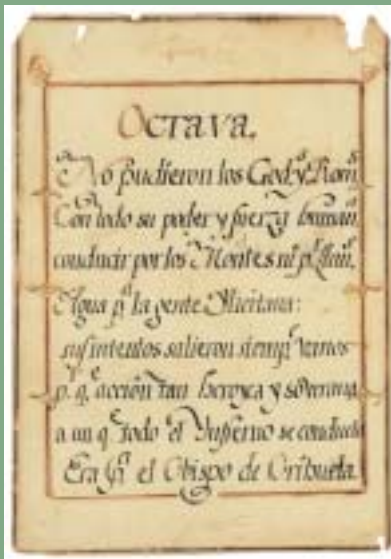 Octava.
No pudieron los God.s y Rom.s
Con todo su poder y fuerza human.
conducir por los Montes ni p.r llan.s
Agua p.a la gente Ilicitana:
sus intentos salieron siemp.e vanos
p.r q.e accion tan heroyca y soberana
a un q.e todo el Ynfierno se conduela
Era p.a el Obispo de Orihuela.